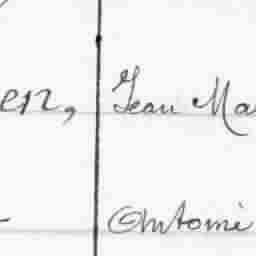 en, Jean Ma
Antoni